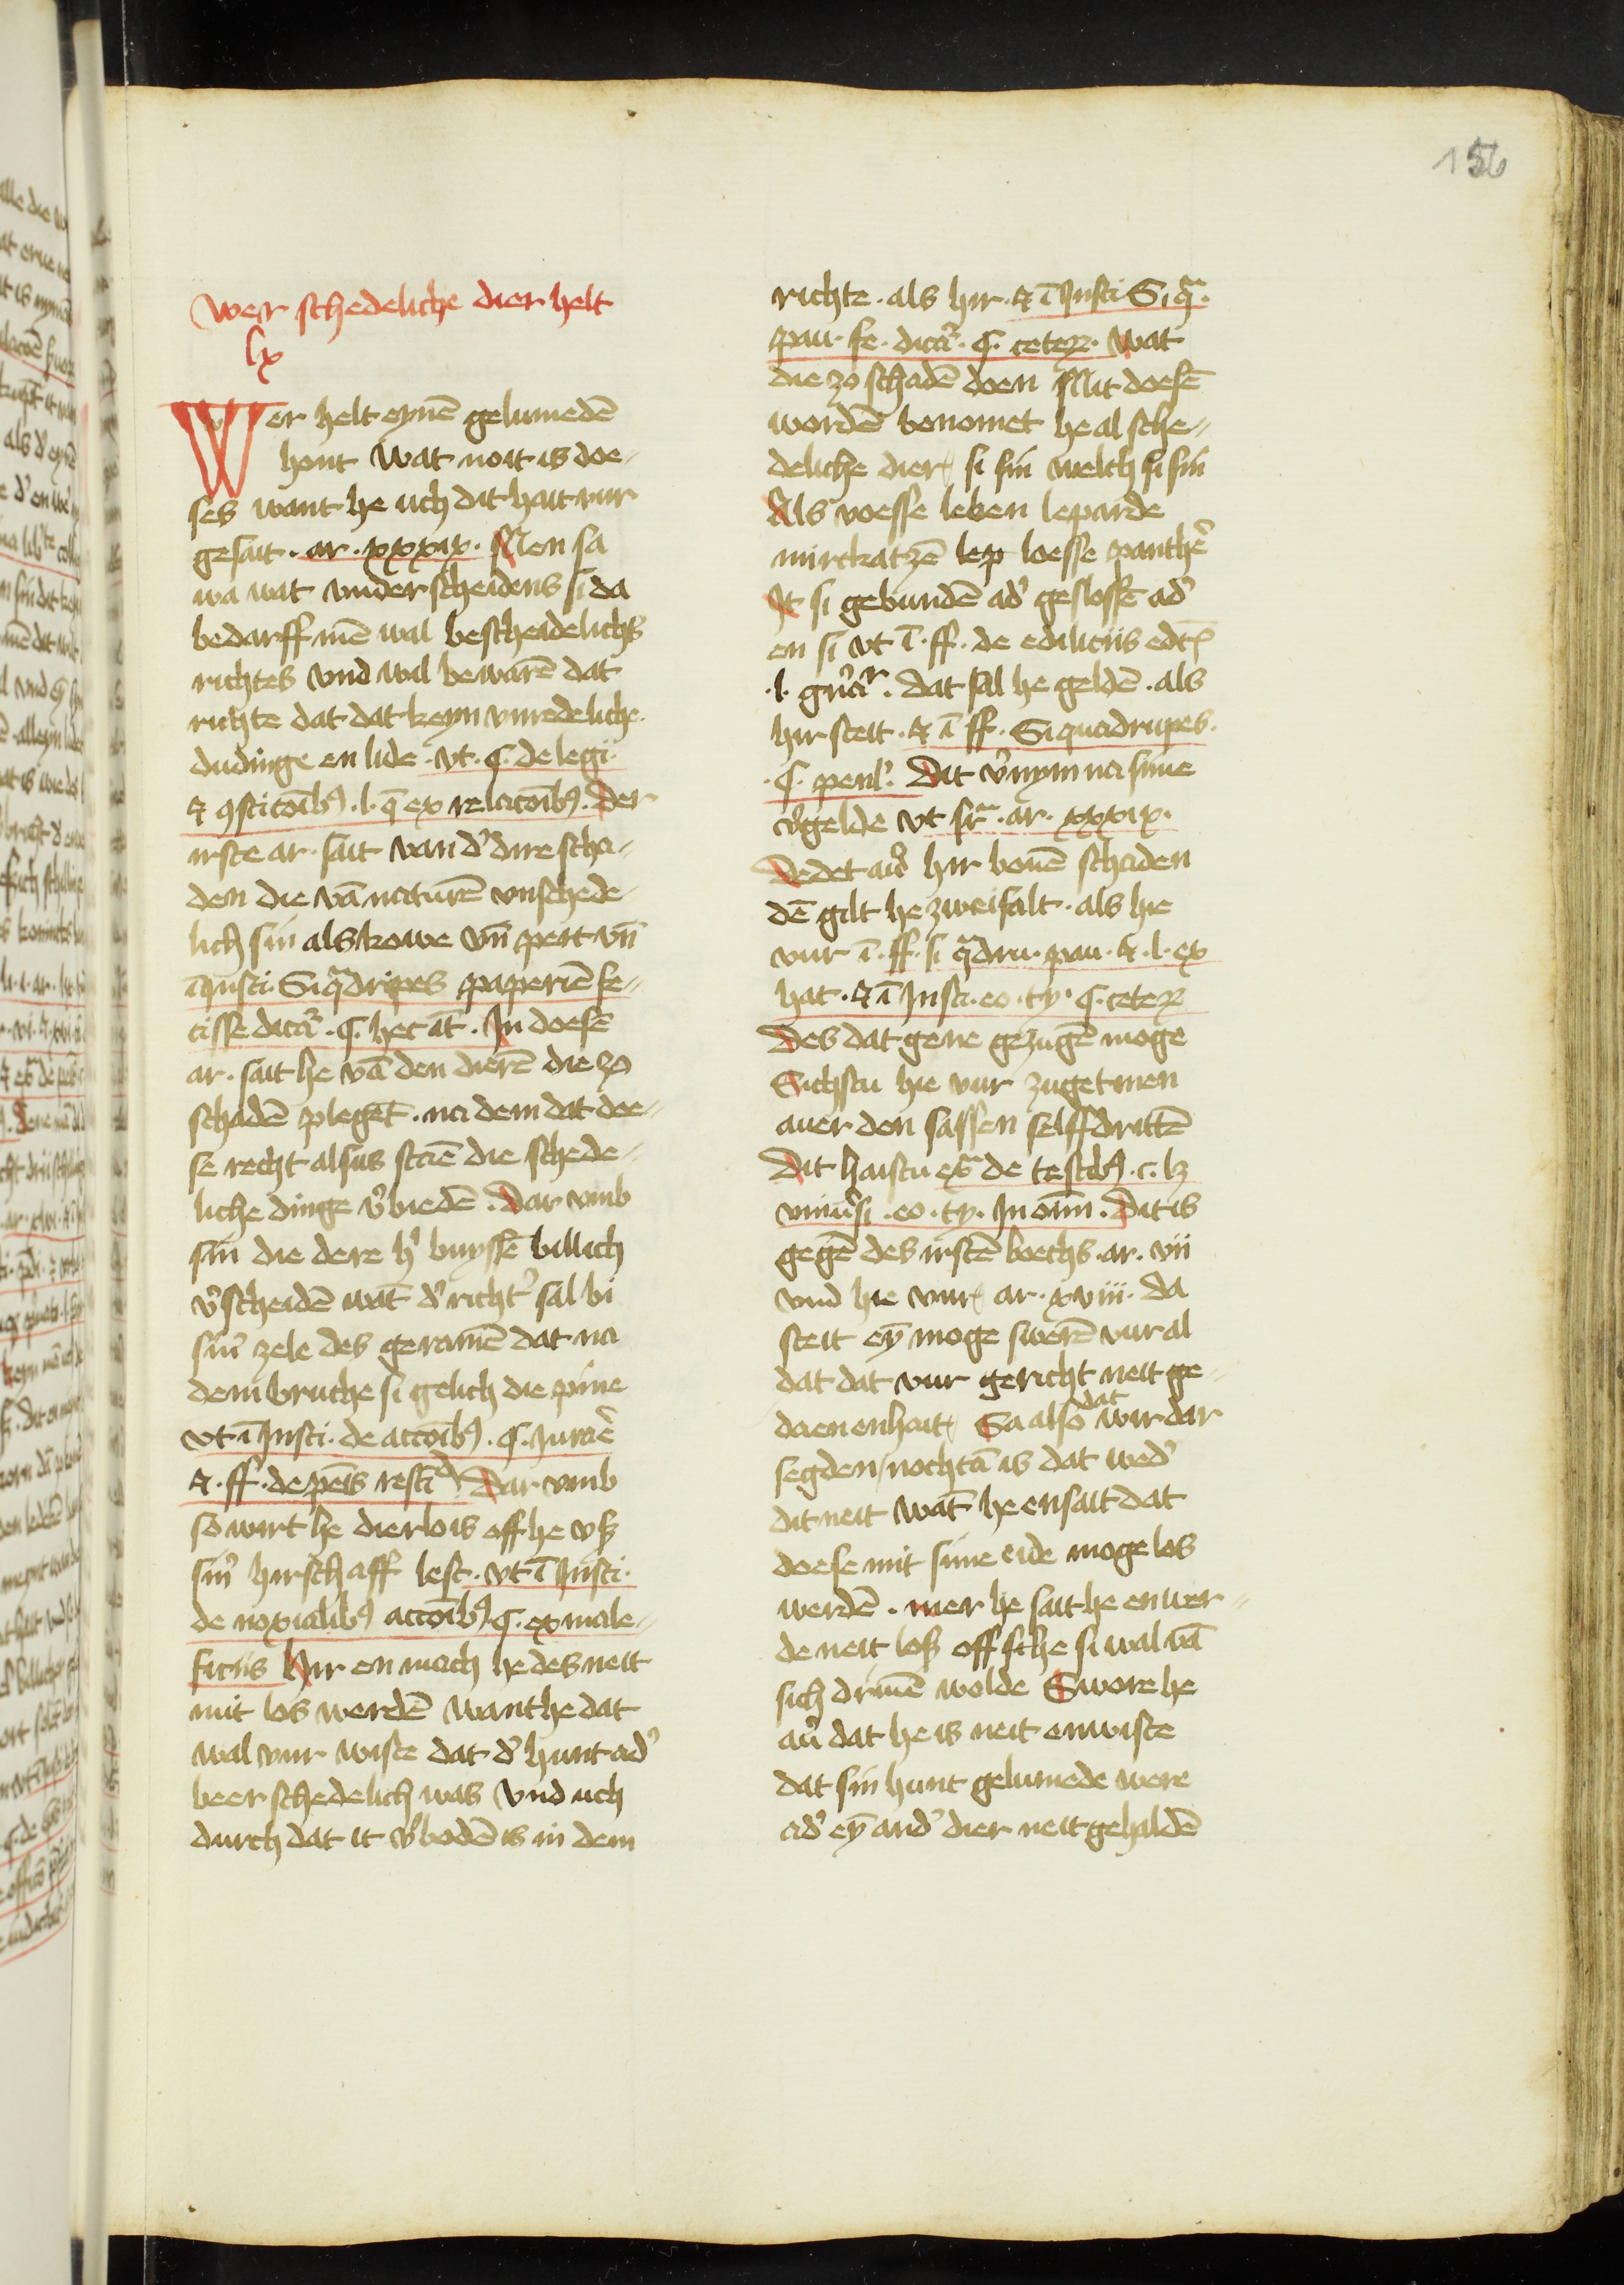 156
Wer schedeliche dier helt
lx
Wer helt eynē gelumedē
hont Wat noit is doe-
ses want he uch dit hait vur
gesait. ar. xxxix. Men sa
wa wat vnderscheidens si da
bedarff mē wal bescheidelichs
richtes Vnd wil bewarē dat
richte dat dat keyn vnredeliche
dudinge en lide. vt. C. de legi.
et ꝯstitoībꝰ. l. q̄ ex relacoībꝰ. Der
irste ar. sait van d' dire scha-
den die vā naturē vnschede-
lich sin als kowe vn̄ pert vn̄
ī Insti. Si q̄dripes paperiē fe-
cisse dicat'. §. hec at̄. In doesē
ar. sait he vā den dierē die zo
schadē plegēt. na dem dat doe-
se recht alsus staē die schede-
liche dinge v'biedē. Dar vmb
sin die dere h' buyssē billich
v'scheidē wāt d' richt' sal bi
sin' zele des geramē dat na
dem bruche si gelich die pine
vt ī Insti. de actoībꝰ. §. Curaē
et. ff. de penis rest' Dar vmb
so wirt he dierlois off he vß
sin' hirschaff lest. vt ī Insti.
de noxialibꝰ actoībꝰ §. ex male-
ficiis Hir en mach he des neit
mit los werdē want he dat
wal vur wiste dat d' hunt ad'
beer schedelich was Vnd uch
durch dat it v'bodē is in dem
richte. als hir. et ī Insti Si q̄.
pau. fe. dicat'. §. ceterū. Wat
die zo schadē doen Mit doesē
wordē benomet he al sche-
deliche dier si sin welch si sin
Als voesse lewen leparde
mirckatzē lep loesse panthe'
It si gebundē ad' geslossē ad'
en si vt ī. ff. de ediliciis edc̄
.l. . Dat sal he geldē. als
hir steit. et ī ff. Si quadrupes.
.§. penl'. Dit v'nym na sime
v'gelde vt sr̄. ar. xxxix.
Dedet au' hir bouē schaden
dē gilt he zweifalt. als hie
vur ī. ff. si q̄dru. pau. et. l. ex
hac. et ī Insti. eo. ty. §. ceterū
Des dat gene gezugē moge
Sichstu hie vur zuget men
auer den sassen selffdrittē
Dit haistu ex̄ de testibꝰ. c. lꝫ
vniu'si. eo. ty. In om̄i. Dit is
gegē des irstē boechs. ar. vii
vnd hie vur ar. xviii. da
steit eȳ moge swerē vur al
dat dat vur gericht neit ge-
daen en hait Sa also dat wir dar
segden / nochtā is dat wed'
dit neit wāt he en sait dat
doese mit sime eide moge los
werdē. mer he sait he en wer-
de neit loß off sche si wal vā
sich driuē wolde Swore he
au' dat he is neit en wiste
dat sin hunt gelumede were
ad' eȳ and' dier neit gehaldē